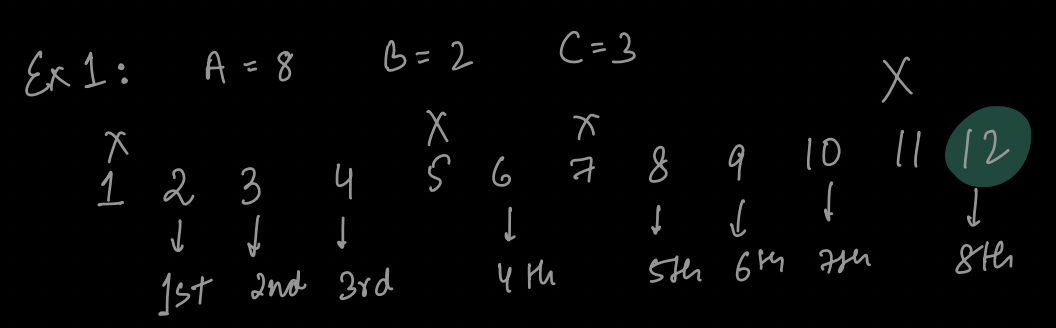 Ex 1: A = 8 B = 2 C = 3
X X X X
1 2 3 4 5 6 7 8 9 10 11 12
↓ ↓ ↓ ↓ ↓ ↓ ↓ ↓
1st 2nd 3rd 4th 5th 6th 7th 8th